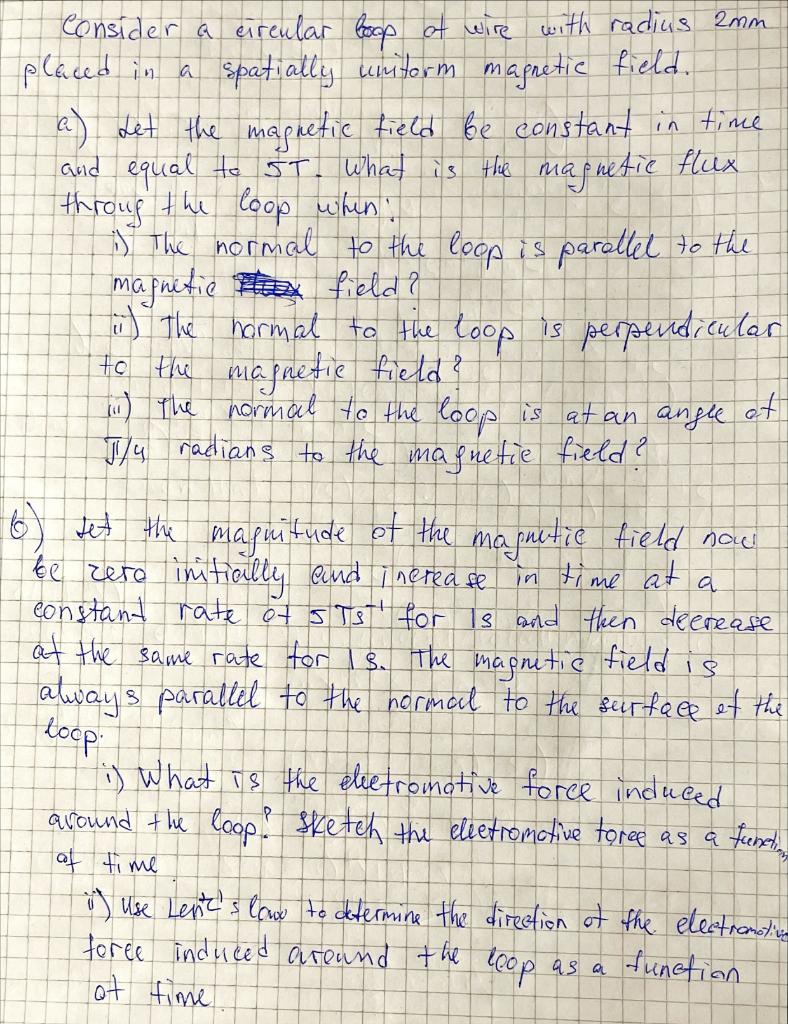 Consider a circular loop of wire with radius 2mm
placed in a spatially uniform magnetic field.
a) Let the magnetic field be constant in time
and equal to 5T. What is the magnetic flux
throug the loop when:
i) The normal to the loop is parallel to the
magnetic field?
ii) The normal to the loop is perpendicular
to the magnetic field?
iii) The normal to the loop is at an angle of
π/4 radians to the magnetic field?
b) Let the magnitude of the magnetic field now
be zero initially and increase in time at a
constant rate of 5 Ts⁻¹ for 1s and then decrease
at the same rate for 1s. The magnetic field is
always parallel to the normal to the surface of the
loop.
i) What is the electromotive force induced
around the loop? Sketch the electromotive force as a function
of time
ii) Use Lentz's law to determine the direction of the electromotive
force induced around the loop as a function
of time